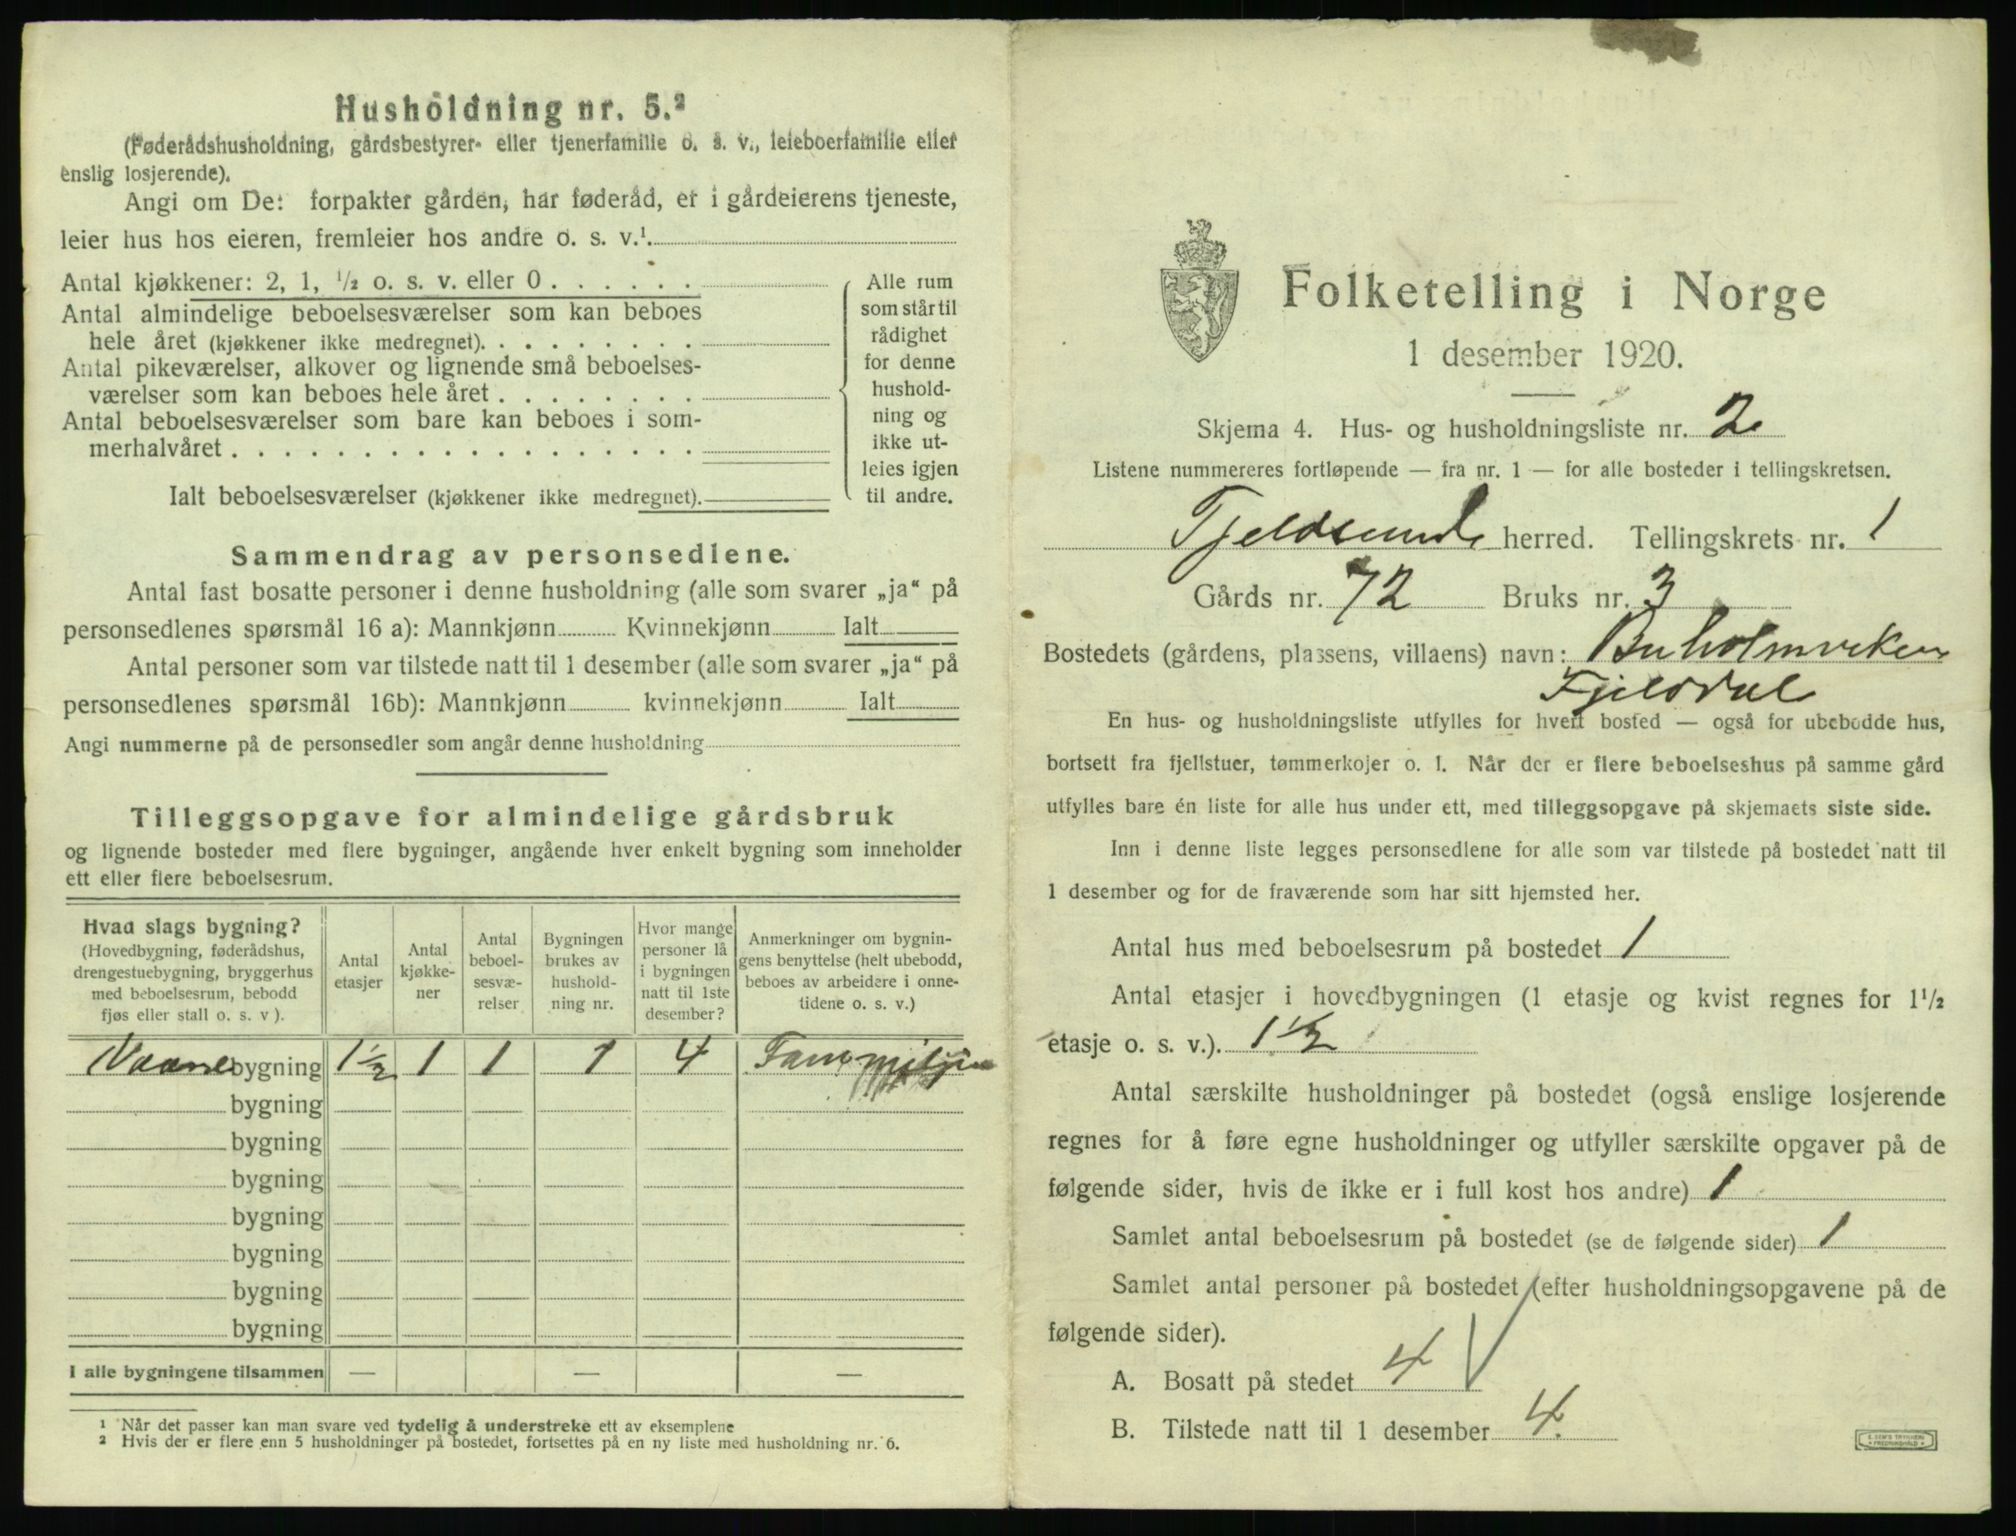 Husholdning nr. 5.²
(Føderådshusholdning, gårdsbestyrer- eller tjenerfamilie o. s. v., leieboerfamilie eller
enslig losjerende).
Angi om De: forpakter gården, har føderåd, er i gårdeierens tjeneste,
leier hus hos eieren, fremleier hos andre o. s. v.¹.
Antal kjøkkener: 2, 1, ½ o. s. v. eller 0 . . . . . .
Antal almindelige beboelsesværelser som kan beboes
hele året (kjøkkener ikke medregnet). . . . . . . . .
Antal pikeværelser, alkover og lignende små beboelses-
værelser som kan beboes hele året . . . . . . . .
Antal beboelsesværelser som bare kan beboes i som-
merhalvåret . . . . . . . . . . . . . . . . . .
Ialt beboelsesværelser (kjøkkener ikke medregnet).
Alle rum
som står til
rådighet
for denne
hushold-
ning og
ikke ut-
leies igjen
til andre.
Sammendrag av personsedlene.
Antal fast bosatte personer i denne husholdning (alle som svarer „ja“ på
personsedlenes spørsmål 16 a): Mannkjønn Kvinnekjønn Ialt
Antal personer som var tilstede natt til 1 desember (alle som svarer „ja“ på
personsedlenes spørsmål 16b): Mannkjønn kvinnekjønn Ialt
Angi nummerne på de personsedler som angår denne husholdning
Tilleggsopgave for almindelige gårdsbruk
og lignende bosteder med flere bygninger, angående hver enkelt bygning som inneholder
ett eller flere beboelsesrum.
Hvad slags bygning?
(Hovedbygning, føderådshus,
drengestuebygning, bryggerhus
med beboelsesrum, bebodd
fjøs eller stall o. s. v ).
Antal
etasjer
Antal
kjøkke-
ner
Antal
beboel-
sesvæ-
relser
Bygningen
brukes av
hushold-
ning nr.
Hvor mange
personer lå
i bygningen
natt til 1ste
desember?
Anmerkninger om bygnin-
gens benyttelse (helt ubebodd,
beboes av arbeidere i onne-
tidene o. s. v.)
bygning 1½ 1 1 1 4
bygning
bygning
bygning
bygning
bygning
bygning
bygning
I alle bygningene tilsammen — — —
¹ Når det passer kan man svare ved tydelig å understreke ett av eksemplene
² Hvis der er flere enn 5 husholdninger på bostedet, fortsettes på en ny liste med husholdning nr. 6.
Folketelling i Norge
1 desember 1920.
Skjema 4. Hus- og husholdningsliste nr. 2
Listene nummereres fortløpende — fra nr. 1 — for alle bosteder i tellingskretsen.
Tjeldsund herred. Tellingskrets nr. 1
Gårds nr. 72 Bruks nr. 3
Bostedets (gårdens, plassens, villaens) navn: Buholmviken
Fjeldal
En hus- og husholdningsliste utfylles for hvert bosted — også for ubebodde hus,
bortsett fra fjellstuer, tømmerkojer o. l. Når der er flere beboelseshus på samme gård
utfylles bare én liste for alle hus under ett, med tilleggsopgave på skjemaets siste side.
Inn i denne liste legges personsedlene for alle som var tilstede på bostedet natt til
1 desember og for de fraværende som har sitt hjemsted her.
Antal hus med beboelsesrum på bostedet 1
Antal etasjer i hovedbygningen (1 etasje og kvist regnes for 1½
etasje o. s. v.). 1½
Antal særskilte husholdninger på bostedet (også enslige losjerende
regnes for å føre egne husholdninger og utfyller særskilte opgaver på de
følgende sider, hvis de ikke er i full kost hos andre) 1
Samlet antal beboelsesrum på bostedet (se de følgende sider) 1
Samlet antal personer på bostedet (efter husholdningsopgavene på de
følgende sider).
A. Bosatt på stedet 4
B. Tilstede natt til 1 desember 4.
E. SEM'S TRYKKERI
FREDRIKSHALD